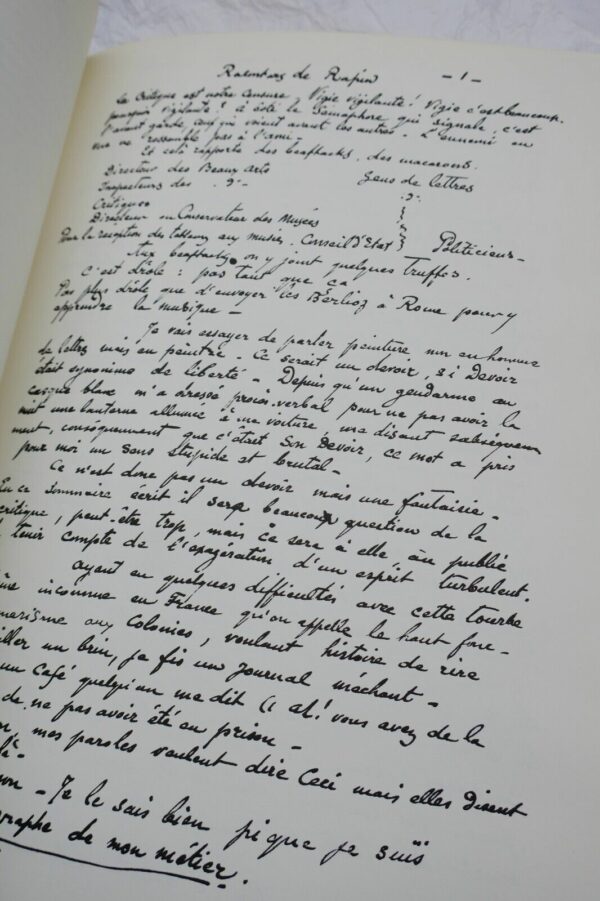 Racontars de Rapin — 1 —
La Critique est notre censure, Vigie vigilante! Vigie c'est beaucoup.
pourquoi vigilante? à côté le Sémaphore qui signale, c'est
l'avant garde, ceux qui voient avant les autres - L'ennemi ou
ne ressemble pas à l'ami -
Et celà rapporte des beafteacks, des macarons.
Directeur des Beaux Arts Gens de lettres
Inspecteurs des d° d°
Critiques
Directeur ou Conservateur des Musées
Pour la réception des tableaux aux musées. Conseil d'Etat } Politicien -
Aux beafteacks on y joint quelques Truffes.
C'est drôle: pas tant que ça
Pas plus drôle que d'envoyer les Berlioz à Rome pour y
apprendre la musique -
Je vais essayer de parler peinture, non en homme
de lettres mais en peintre - Ce serait un devoir, si Devoir
était synonime de liberté - Depuis qu'un gendarme au
casque blanc m'a dressé procès-verbal pour ne pas avoir la
nuit une lanterne allumée à ma voiture, me disant subséquem
ment, conséquement que c'était Son Devoir, ce mot a pris
pour moi un sens stupide et brutal -
Ce n'est donc pas un devoir mais une fantaisie -
En ce sommaire écrit il sera beaucoup question de la
critique, peut-être trop, mais ce sera à elle au publié
tenir compte de l'exagération d'un esprit turbulent.
ayant eu quelques difficultés avec cette tourbe
inconnue en France qu'on appelle le haut fonc-
aux Colonies, voulant histoire de rire
un brin, je fis un Journal méchant -
un Café quelqu'un me dit « ah! vous avez de la
de ne pas avoir été en prison -
mes paroles veulent dire Ceci mais elles disent
- Je le sais bien puique je suis
de mon métier.